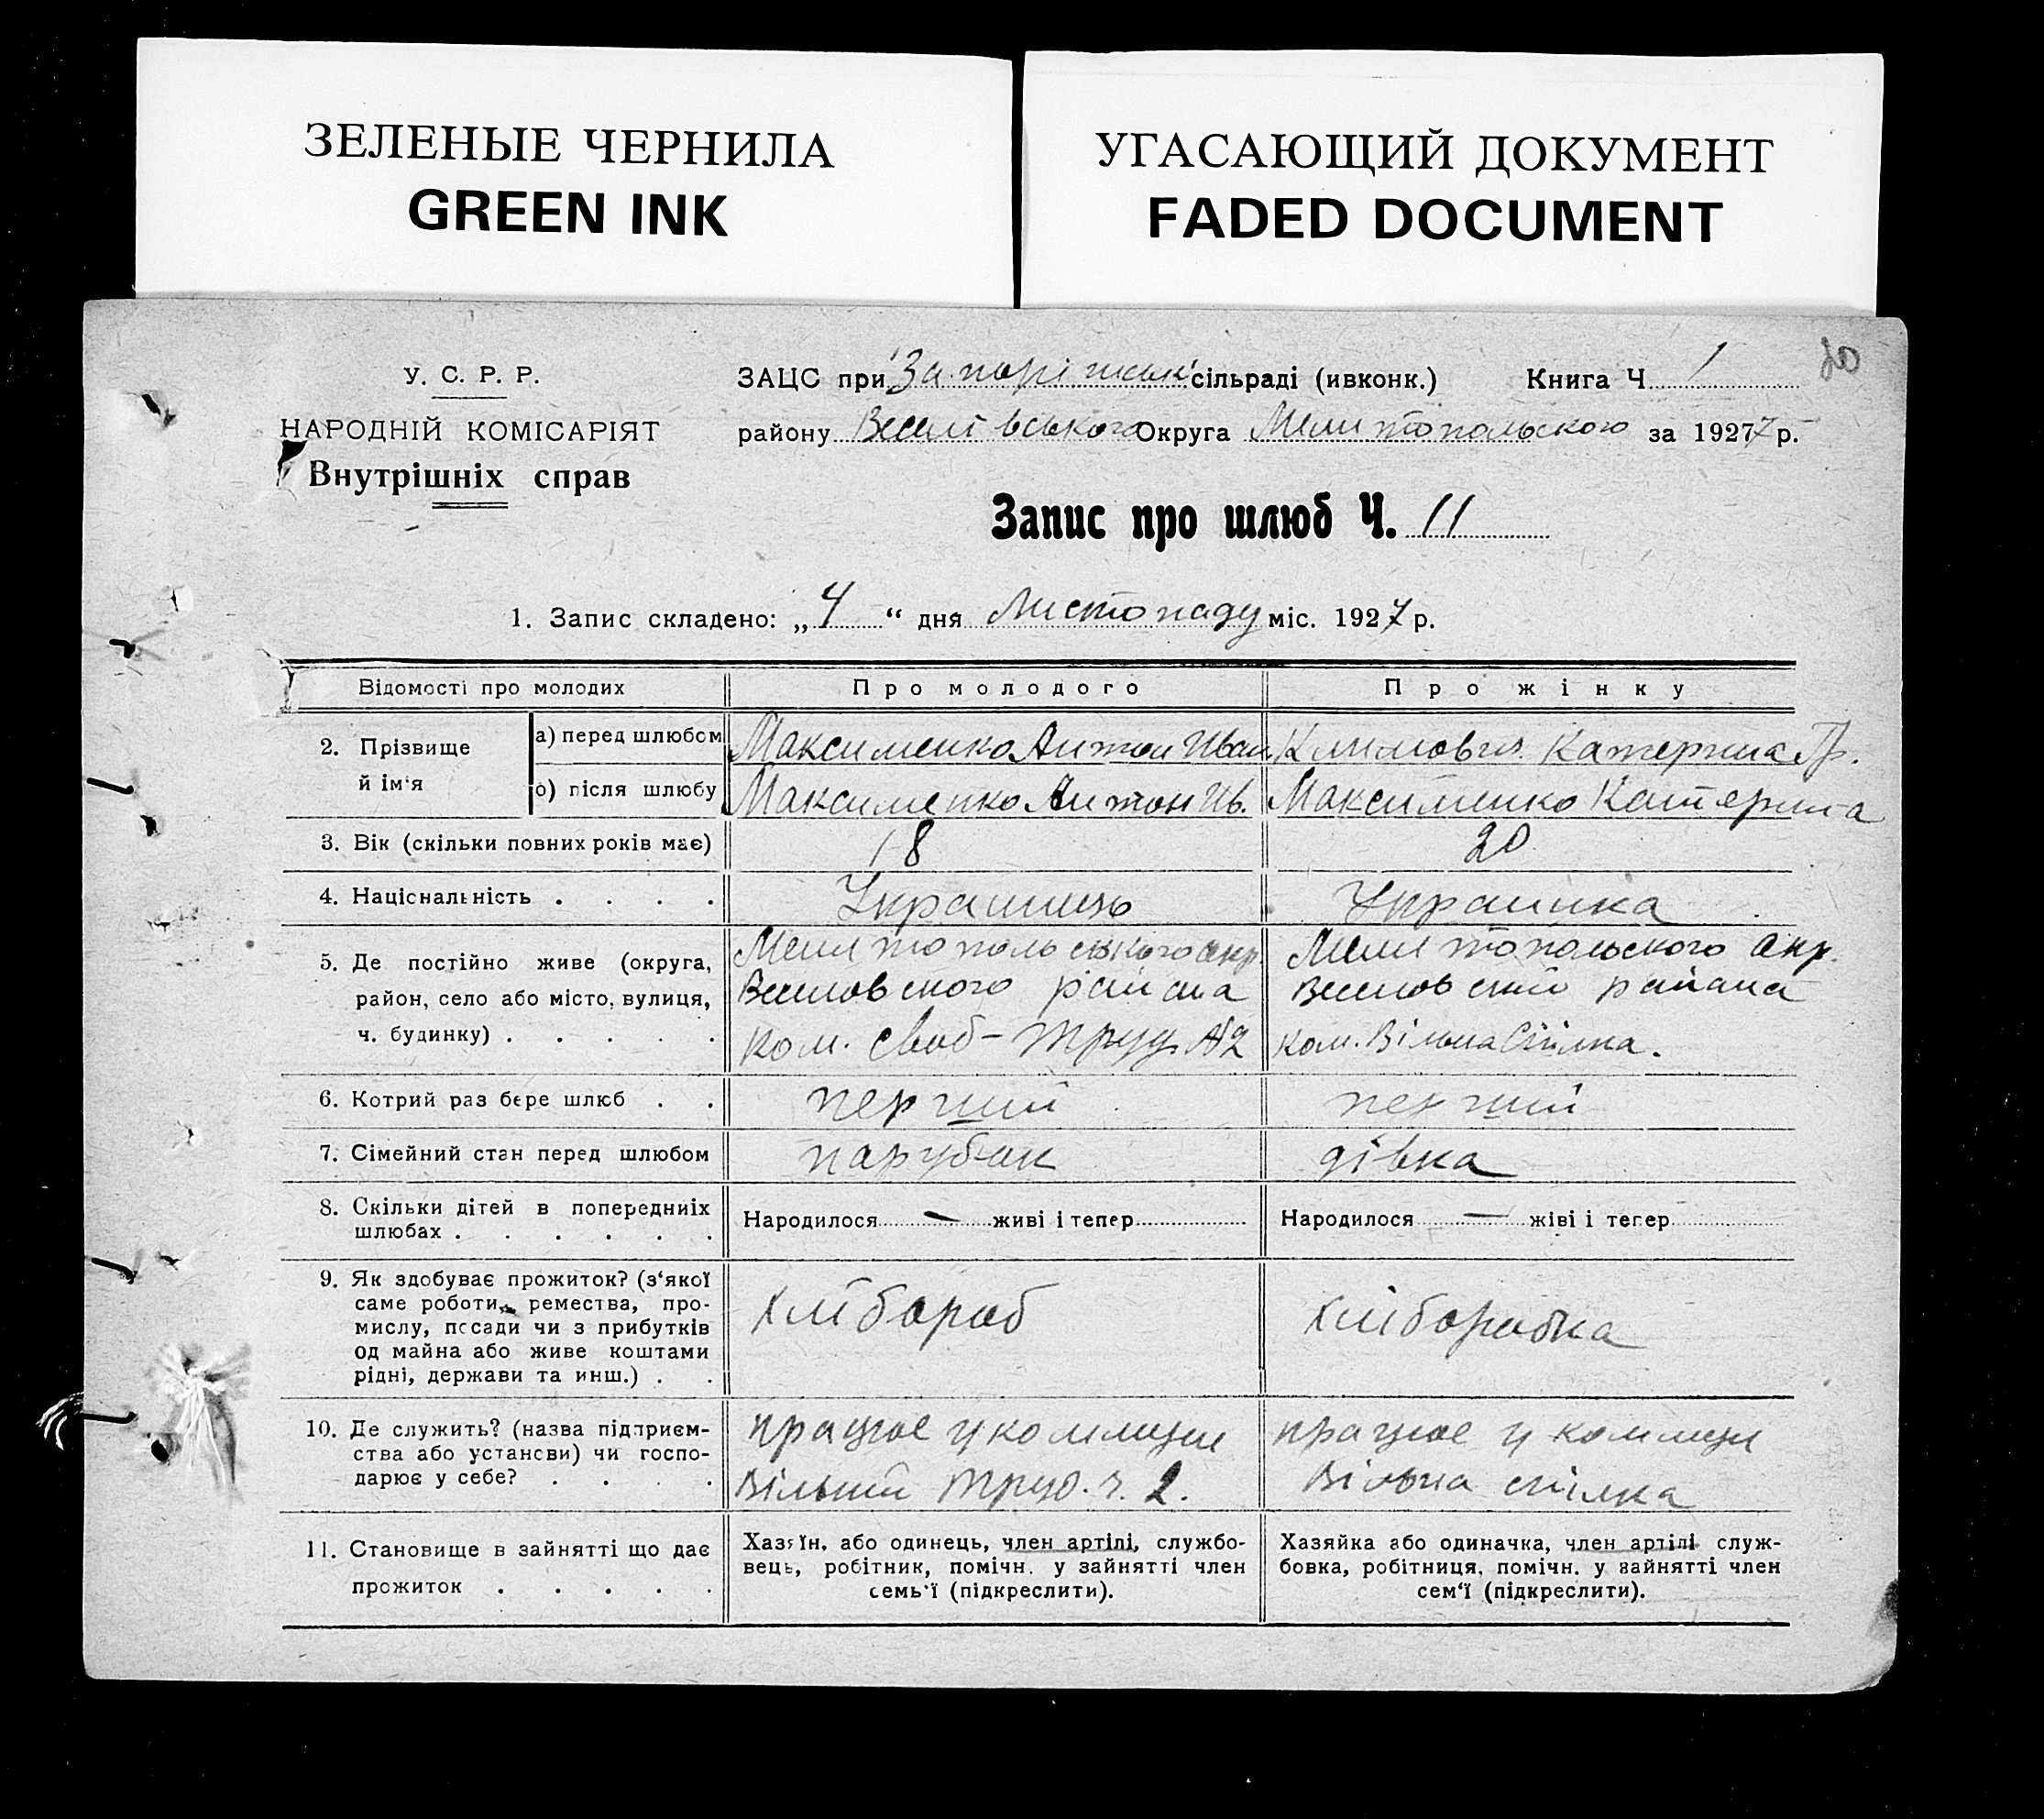 ЗЕЛЕНЫЕ ЧЕРНИЛА
GREEN INK
УГАСАЮЩИЙ ДОКУМЕНТ
FADED DOCUMENT
20
У. С. Р. Р.
НАРОДНІЙ КОМІСАРІЯТ
Внутрішніх справ
ЗАЦС при сільраді (ивконк.) Книга Ч 1
району Веселівського Округа Мелитопольского за 1927 7 р.
Запис про шлюб Ч. 11
1. Запис складено: „4“ дня Листопаду міс. 1927 р.
Відомості про молодих
Про молодого
Про жінку
2. Прізвище й ім'я
а) перед шлюбом
Максименко Антон Иван.
Климович Катерина Гр.
б) після шлюбу
Максименко Антон Ив.
Максименко Катерина
3. Вік (скільки повних років має)
18
20
4. Національність . . . .
Украинць
Украинка
5. Де постійно живе (округа,
район, село або місто, вулиця,
ч. будинку) . . . . .
Мелитопольського окр.
Веселовского района
ком. Своб-Труд №2
Мелитопольского Окр.
Веселовский района
ком. Вільна Спілка.
6. Котрий раз бере шлюб . .
перший
перший
7. Сімейний стан перед шлюбом
парубок
дівка
8. Скільки дітей в попередниіх
шлюбах . . . . . .
Народилося — живі і тепер
Народилося — жіві і тепер
9. Як здобуває прожиток? (з'якої
саме роботи, ремества, про-
мислу, посади чи з прибутків
од майна або живе коштами
рідні, держави та инш.) . .
Хлібороб
Хліборобка
10. Де служить? (назва підприєм-
ства або установи) чи госпо-
дарює у себе? . . . .
працює у коммуни
Вільний Труд. ч. 2.
працює у коммуни
Вільна спілка
11. Становище в зайнятті що дає
прожиток . . . . .
Хазяїн, або одинець, член артілі, службо-
вець, робітник, помічн. у зайнятті член
семь'ї (підкреслити).
Хазяйка або одиначка, член артілі служ-
бовка, робітниця, помічн. у зайнятті член
сем'ї (підкреслити).